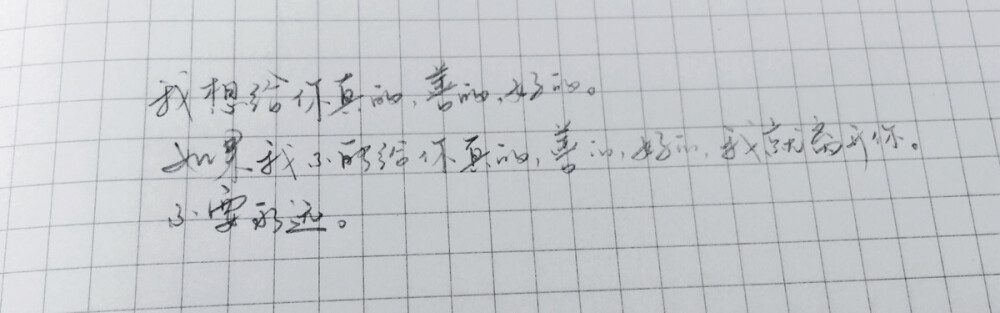 我想给你真的、善的、好的。
如果我不能给你真的、善的、好的，我就离开你。
不要永远。